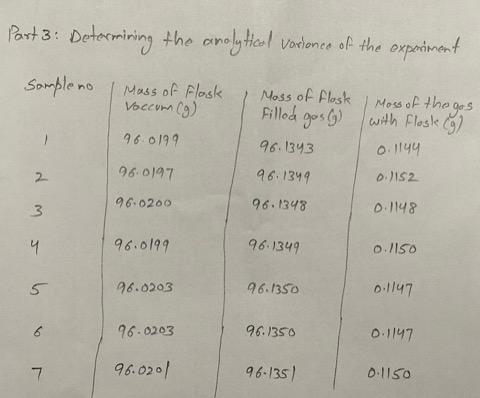 Part 3: Determining the analytical variance of the experiment
Sample no | Mass of Flask Vaccum (g) | Mass of Flask Filled gas (g) | Mass of the gas with Flask (g)
1 96.0199 96.1343 0.1144
2 96.0197 96.1349 0.1152
3 96.0200 96.1348 0.1148
4 96.0199 96.1349 0.1150
5 96.0203 96.1350 0.1147
6 96.0203 96.1350 0.1147
7 96.0201 96.1351 0.1150